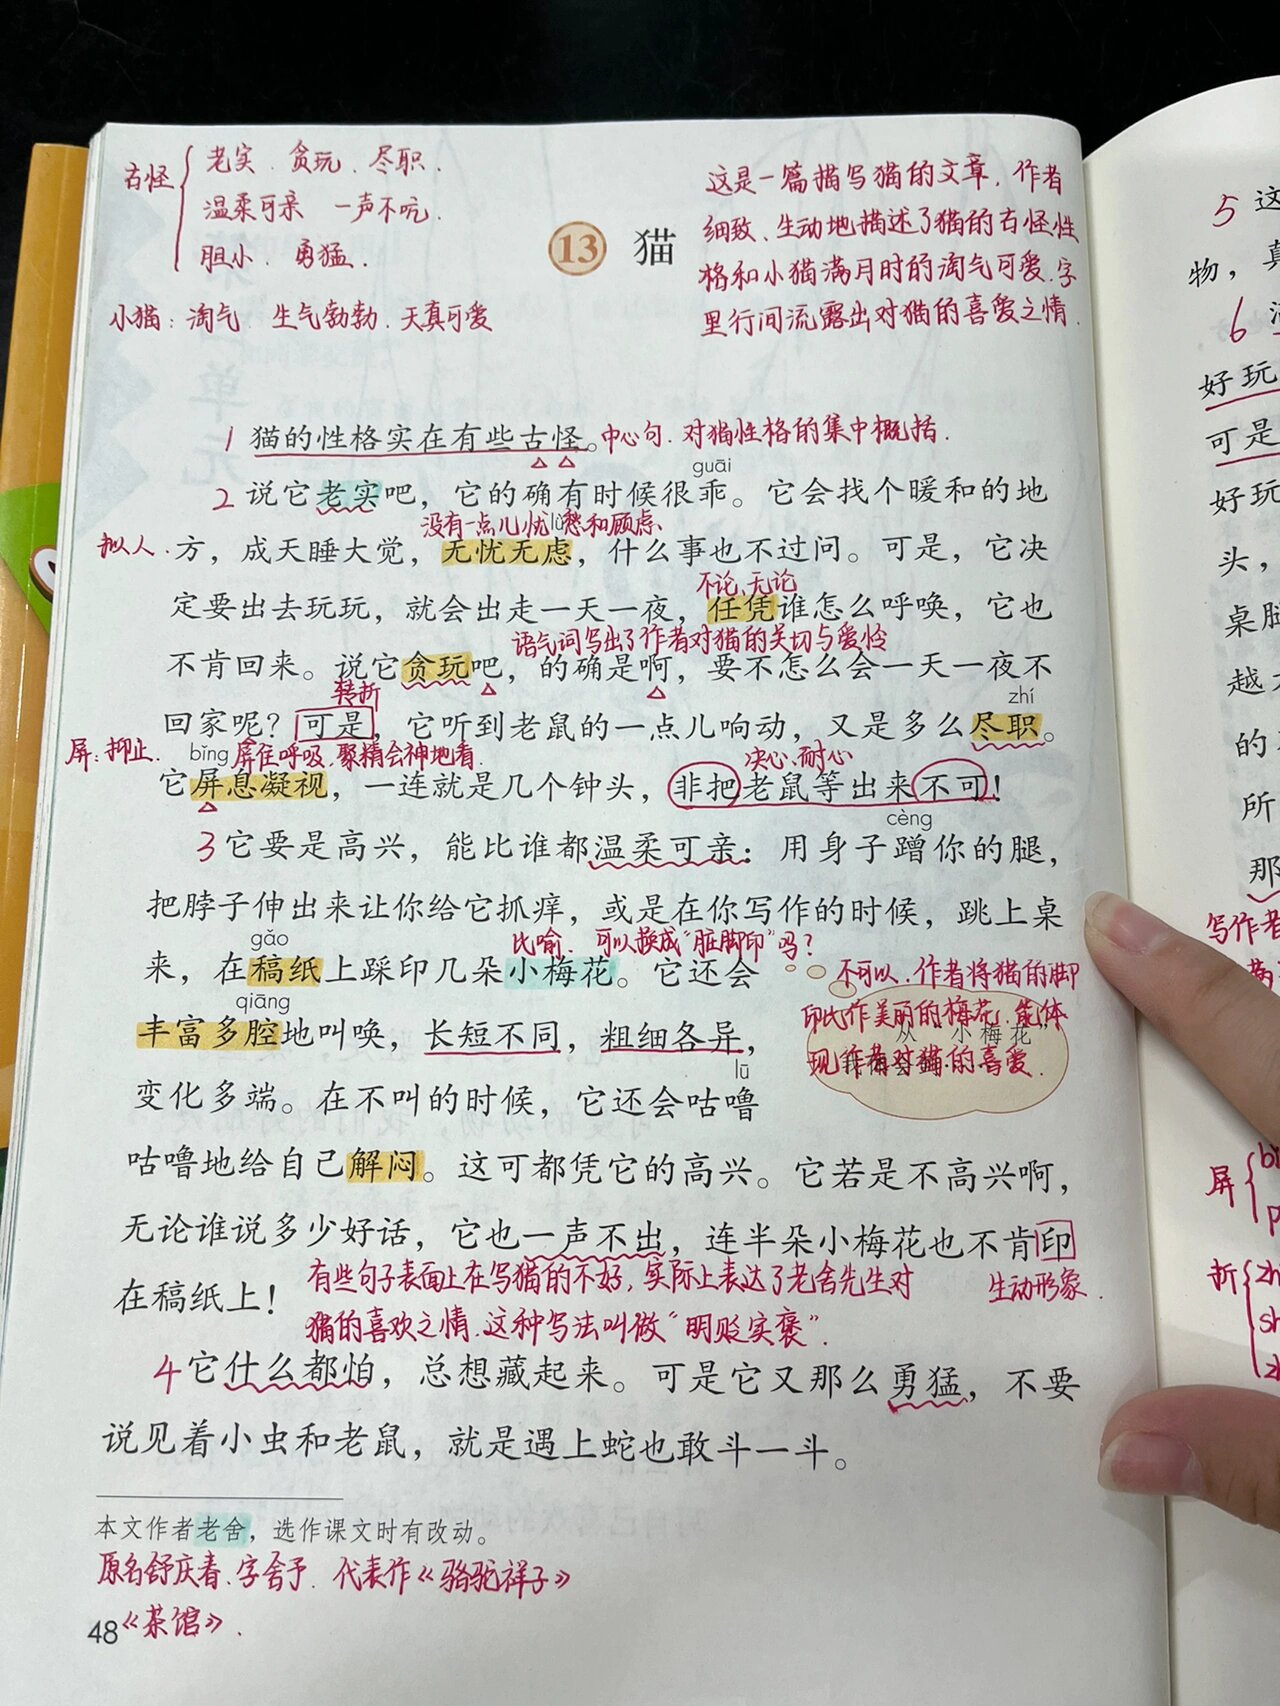 古怪
老实、贪玩、尽职.
温柔可亲 一声不吭.
胆小. 勇猛.
小猫:淘气. 生气勃勃. 天真可爱
这是一篇描写猫的文章. 作者
细致、生动地描述了猫的古怪性
格和小猫满月时的淘气可爱. 字
里行间流露出对猫的喜爱之情.
13 猫
1 猫的性格实在有些古怪。中心句. 对猫性格的集中概括.
guāi
2 说它老实吧，它的确有时候很乖。它会找个暖和的地
没有一点儿忧愁和顾虑.
lǜ
拟人. 方，成天睡大觉，无忧无虑，什么事也不过问。可是，它决
不论、无论
定要出去玩玩，就会出走一天一夜，任凭谁怎么呼唤，它也
语气词写出了作者对猫的关切与爱怜
不肯回来。说它贪玩吧，的确是啊，要不怎么会一天一夜不
转折
zhí
回家呢？可是，它听到老鼠的一点儿响动，又是多么尽职。
屏:抑止. bǐng 屏住呼吸. 聚精会神地看. 决心、耐心
它屏息凝视，一连就是几个钟头，非把老鼠等出来不可！
cèng
3 它要是高兴，能比谁都温柔可亲：用身子蹭你的腿，
把脖子伸出来让你给它抓痒，或是在你写作的时候，跳上桌
gǎo
比喻. 可以换成“脏脚印”吗?
来，在稿纸上踩印几朵小梅花。它还会
不可以. 作者将猫的脚
印比作美丽的梅花. 能体
现作者对猫的喜爱.
从“小梅花”
qiāng
丰富多腔地叫唤，长短不同，粗细各异，
lū
变化多端。在不叫的时候，它还会咕噜
咕噜地给自己解闷。这可都凭它的高兴。它若是不高兴啊，
无论谁说多少好话，它也一声不出，连半朵小梅花也不肯印
在稿纸上！
有些句子表面上在写猫的不好, 实际上表达了老舍先生对
猫的喜欢之情. 这种写法叫做“明贬实褒”.
生动形象.
4 它什么都怕，总想藏起来。可是它又那么勇猛，不要
说见着小虫和老鼠，就是遇上蛇也敢斗一斗。
本文作者老舍，选作课文时有改动。
原名舒庆春. 字舍予. 代表作《骆驼祥子》
《茶馆》.
48
5 这
物，真
6
好玩
可是
好玩
头，
桌脚
越
的
所
那
写作者
屏
折
zh
sh